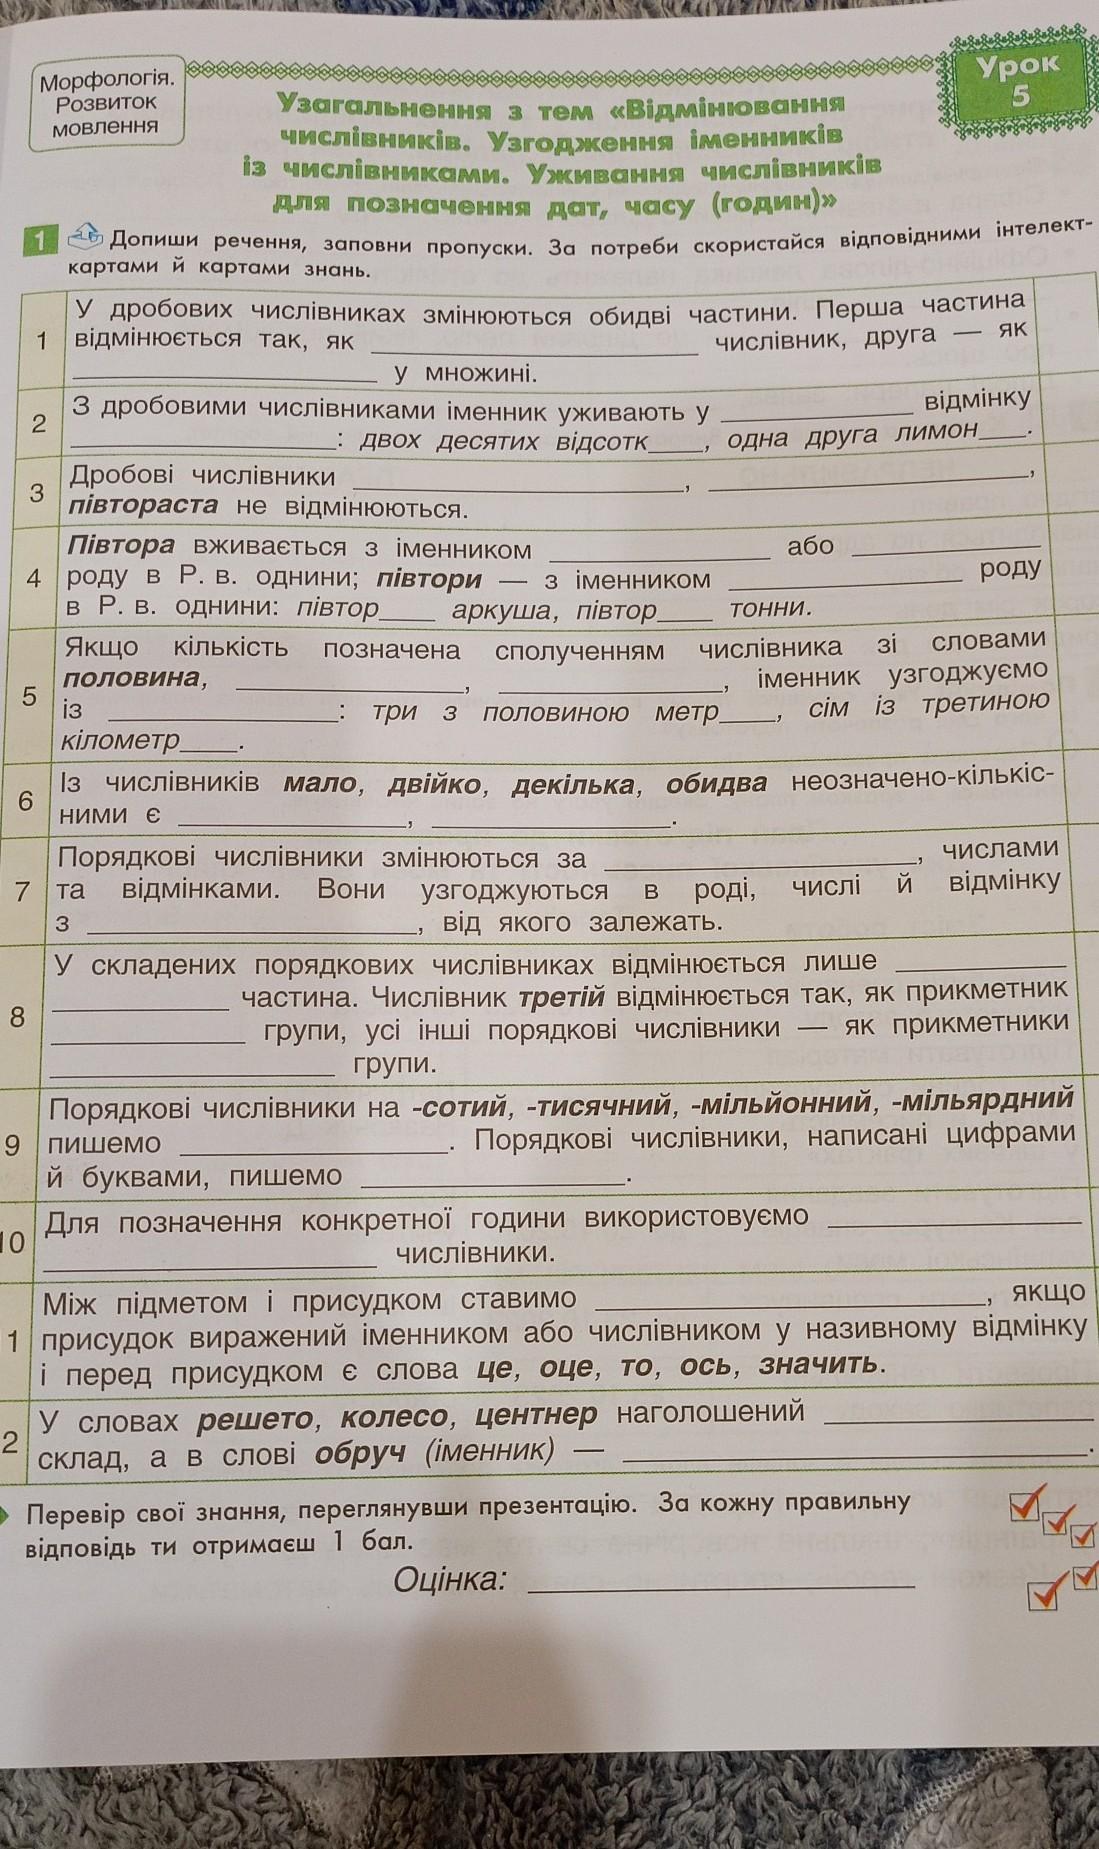 Морфологія.
Розвиток
мовлення
Урок
5
Узагальнення з тем «Відмінювання
числівників. Узгодження іменників
із числівниками. Уживання числівників
для позначення дат, часу (годин)»
1 Допиши речення, заповни пропуски. За потреби скористайся відповідними інтелект-
картами й картами знань.
У дробових числівниках змінюються обидві частини. Перша частина
1 відмінюється так, як ____ числівник, друга — як
____ у множині.
2 З дробовими числівниками іменник уживають у ____ відмінку
____: двох десятих відсотк____, одна друга лимон____.
3 Дробові числівники ____, ____,
півтораста не відмінюються.
Півтора вживається з іменником ____ або ____
4 роду в Р. в. однини; півтори — з іменником ____ роду
в Р. в. однини: півтор____ аркуша, півтор____ тонни.
Якщо кількість позначена сполученням числівника зі словами
половина, ____, ____, іменник узгоджуємо
5 із ____: три з половиною метр____, сім із третиною
кілометр____.
6 Із числівників мало, двійко, декілька, обидва неозначено-кількіс-
ними є ____, ____.
Порядкові числівники змінюються за ____, числами
7 та відмінками. Вони узгоджуються в роді, числі й відмінку
з ____, від якого залежать.
У складених порядкових числівниках відмінюється лише ____
8 ____ частина. Числівник третій відмінюється так, як прикметник
____ групи, усі інші порядкові числівники — як прикметники
____ групи.
Порядкові числівники на -сотий, -тисячний, -мільйонний, -мільярдний
9 пишемо ____. Порядкові числівники, написані цифрами
й буквами, пишемо ____.
10 Для позначення конкретної години використовуємо ____
____ числівники.
Між підметом і присудком ставимо ____, якщо
1 присудок виражений іменником або числівником у називному відмінку
і перед присудком є слова це, оце, то, ось, значить.
2 У словах решето, колесо, центнер наголошений ____
склад, а в слові обруч (іменник) — ____.
Перевір свої знання, переглянувши презентацію. За кожну правильну
відповідь ти отримаєш 1 бал.
Оцінка: ____